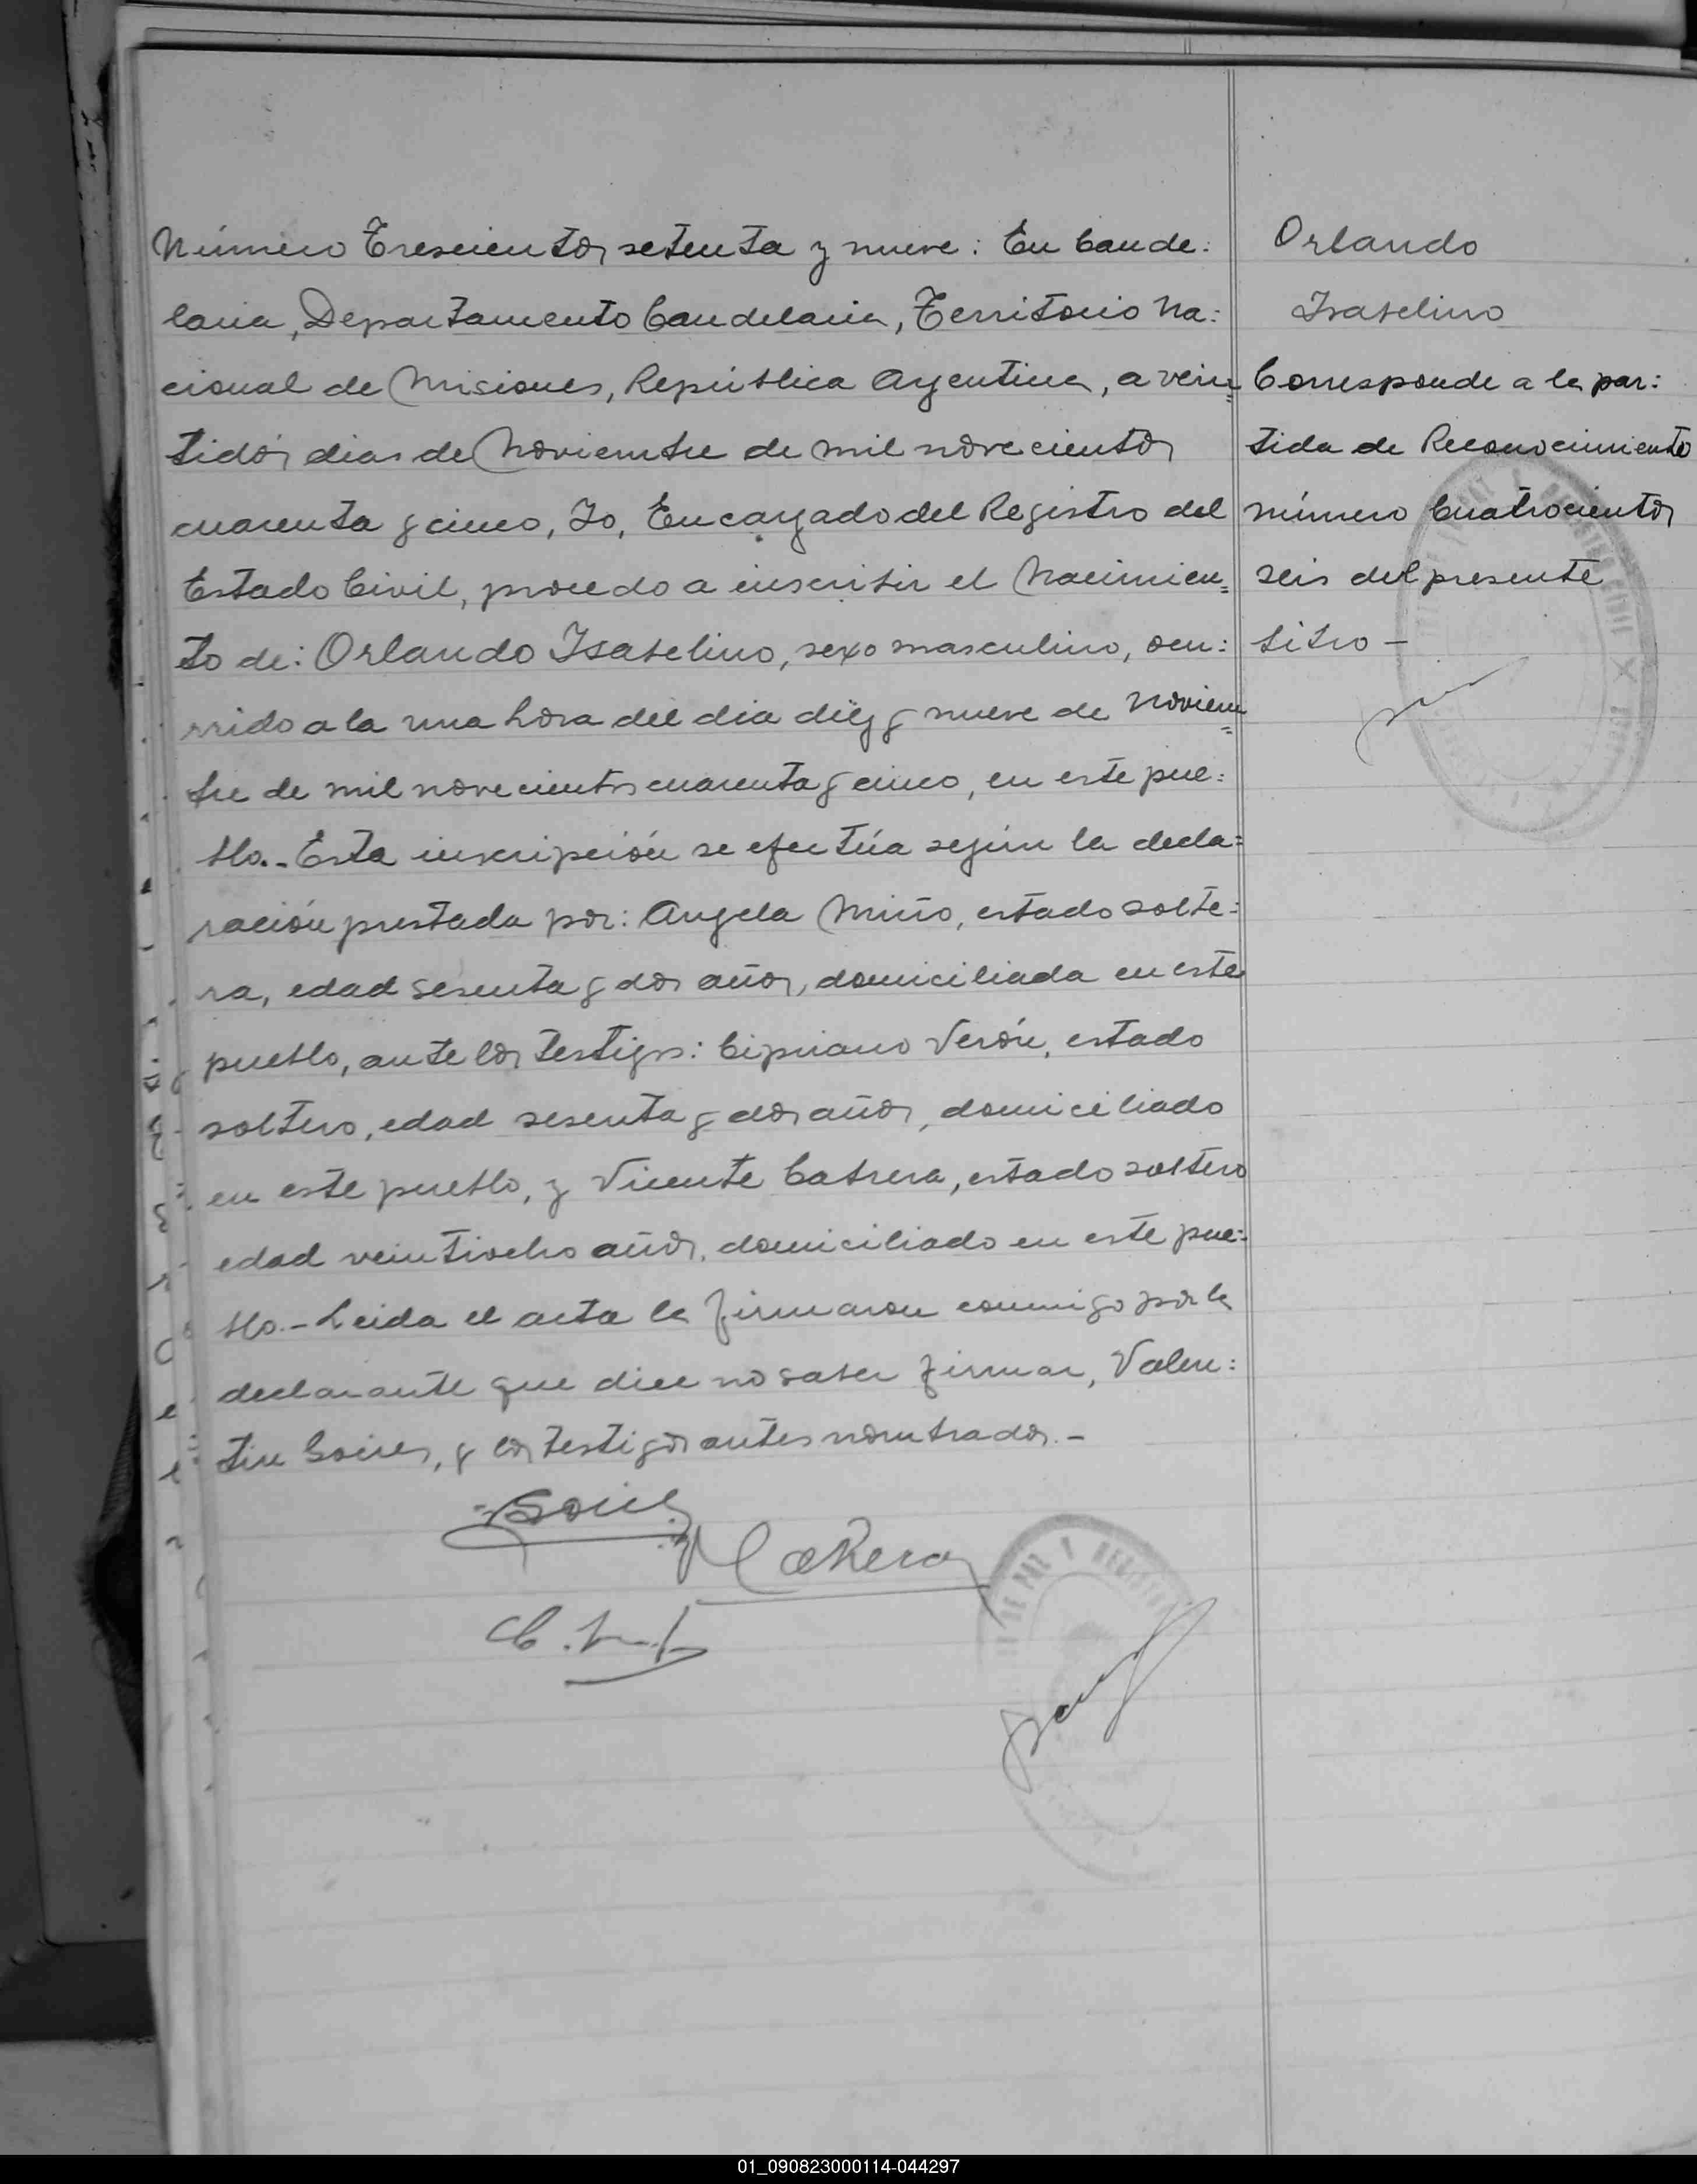 Número Trescientos setenta y nueve: En Cande:
laria, Departamento Candelaria, Territorio Na:
cional de Misiones, República Argentina, a vein=
tidós dias de Noviembre de mil novecientos
cuarenta y cinco, Yo, Encargado del Registro del
Estado Civil, procedo a inscribir el Nacimien=
to de: Orlando Isabelino, sexo masculino, ocu:
rrido a la una hora del dia diez y nueve de Noviem=
bre de mil novecientos cuarenta y cinco, en este pue:
blo.- Esta inscripción se efectúa según la decla=
ración prestada por: Angela Miño, estado solte=
ra, edad sesenta y dos años, domiciliada en este
pueblo, ante los testigos: Cipriano Verón, estado
soltero, edad sesenta y dos años, domiciliado
en este pueblo, y Vicente Cabrera, estado soltero
edad veintiocho años, domiciliado en este pue=
blo.- Leida el acta la firmaron conmigo por la
declarante que dice no saber firmar, Valen:
tin Goires, y los testigos antes nombrados.-
Orlando
Isabelino
Corresponde a la par:
tida de Reconocimiento
número Cuatrocientos
seis del presente
libro -
01_090823000114-044297